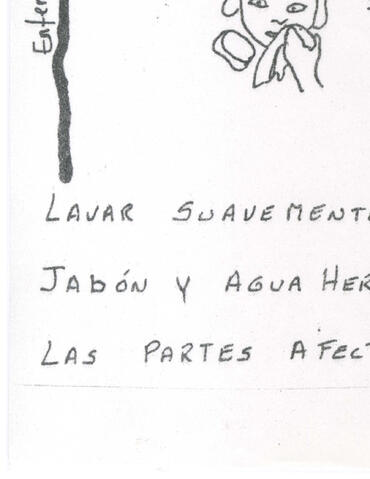 Enfer
LAVAR SUAVEMENT
JABÓN Y AGUA HER
LAS PARTES AFECT